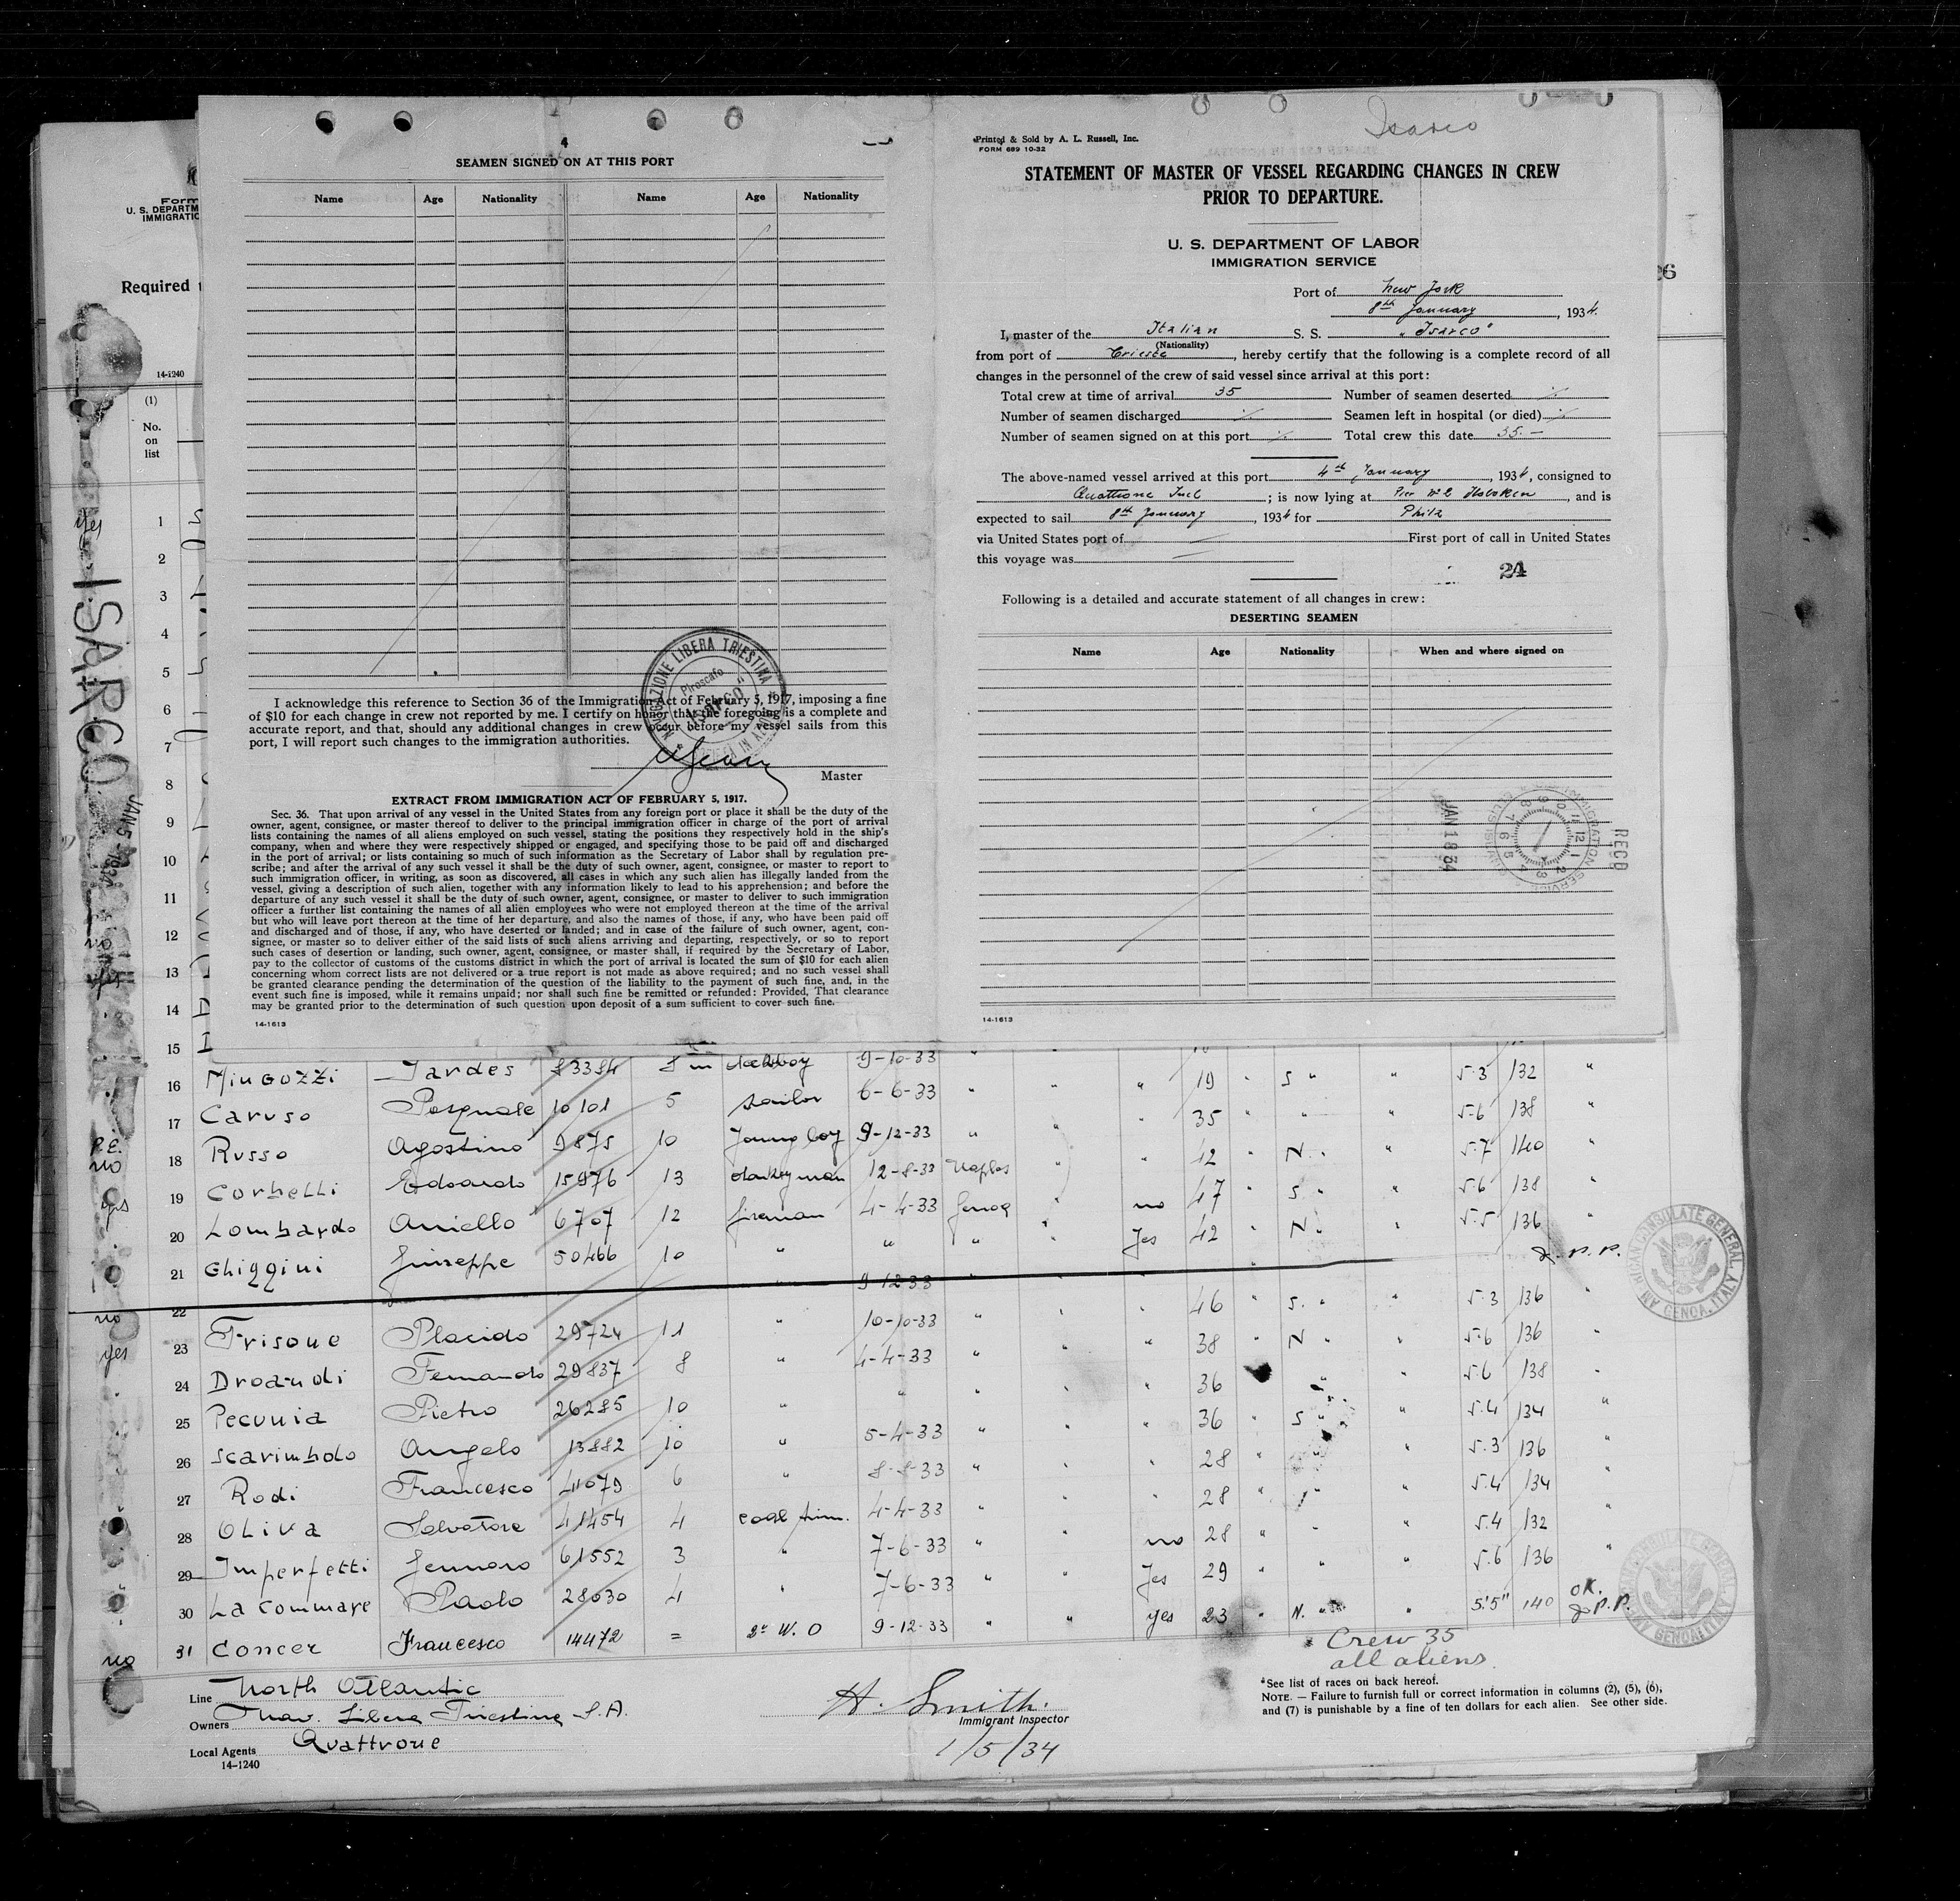 4
SEAMEN SIGNED ON AT THIS PORT
Name Age Nationality Name Age Nationality
I acknowledge this reference to Section 36 of the Immigration Act of February 5, 1917, imposing a fine
of $10 for each change in crew not reported by me. I certify on honor that the foregoing is a complete and
accurate report, and that, should any additional changes in crew occur before my vessel sails from this
port, I will report such changes to the immigration authorities.
NAVIGAZIONE LIBERA TRIESTINA
Piroscafo
Master
EXTRACT FROM IMMIGRATION ACT OF FEBRUARY 5, 1917.
Sec. 36. That upon arrival of any vessel in the United States from any foreign port or place it shall be the duty of the
owner, agent, consignee, or master thereof to deliver to the principal immigration officer in charge of the port of arrival
lists containing the names of all aliens employed on such vessel, stating the positions they respectively hold in the ship's
company, when and where they were respectively shipped or engaged, and specifying those to be paid off and discharged
in the port of arrival; or lists containing so much of such information as the Secretary of Labor shall by regulation pre-
scribe; and after the arrival of any such vessel it shall be the duty of such owner, agent, consignee, or master to report to
such immigration officer, in writing, as soon as discovered, all cases in which any such alien has illegally landed from the
vessel, giving a description of such alien, together with any information likely to lead to his apprehension; and before the
departure of any such vessel it shall be the duty of such owner, agent, consignee, or master to deliver to such immigration
officer a further list containing the names of all alien employees who were not employed thereon at the time of the arrival
but who will leave port thereon at the time of her departure, and also the names of those, if any, who have been paid off
and discharged and of those, if any, who have deserted or landed; and in case of the failure of such owner, agent, con-
signee, or master so to deliver either of the said lists of such aliens arriving and departing, respectively, or so to report
such cases of desertion or landing, such owner, agent, consignee, or master shall, if required by the Secretary of Labor,
pay to the collector of customs of the customs district in which the port of arrival is located the sum of $10 for each alien
concerning whom correct lists are not delivered or a true report is not made as above required; and no such vessel shall
be granted clearance pending the determination of the question of the liability to the payment of such fine, and, in the
event such fine is imposed, while it remains unpaid; nor shall such fine be remitted or refunded: Provided, That clearance
may be granted prior to the determination of such question upon deposit of a sum sufficient to cover such fine.
14-1613
Isarco
Printed & Sold by A. L. Russell, Inc.
FORM 689 10-32
STATEMENT OF MASTER OF VESSEL REGARDING CHANGES IN CREW
PRIOR TO DEPARTURE.
U. S. DEPARTMENT OF LABOR
IMMIGRATION SERVICE
Port of New York
8th January, 1934.
I, master of the Italian S. S. "Isarco"
(Nationality)
from port of Trieste, hereby certify that the following is a complete record of all
changes in the personnel of the crew of said vessel since arrival at this port:
Total crew at time of arrival 35 Number of seamen deserted ./.
Number of seamen discharged ./. Seamen left in hospital (or died) ./.
Number of seamen signed on at this port ./. Total crew this date 35.—
The above-named vessel arrived at this port 4th January, 1934, consigned to
Quattrone Incl; is now lying at Pier No 2 Hoboken, and is
expected to sail 8th January, 1934 for Phila
via United States port of — First port of call in United States
this voyage was —
24
Following is a detailed and accurate statement of all changes in crew:
DESERTING SEAMEN
Name Age Nationality When and where signed on
RECD
JAN 18 34
14-1613
26
Form
U. S. DEPARTM
IMMIGRATIO
Required
14-1240
(1)
No.
on
list
ISARCO
JAN 5 1934
yes 1
2
3
4
5
6
7
8
9
10
11
no 12
yes 13
14
15
16 Mingozzi Jardes 83384 8 m deckboy 9-10-33 " " " 19 " S " " 5.3 132 "
17 Caruso Pasquale 10101 5 sailor 6-6-33 " " " 35 " " " 5-6 138 "
P.E. no 18 Russo Agostino 9875 10 Young boy 9-12-33 " " " 42 " N " " 5.7 140 "
yes 19 Corbelli Edoardo 15976 13 donkeyman 12-8-33 Naples " no 47 " S " " 5.6 138 "
20 Lombardo Aniello 6707 12 fireman 4-4-33 Genoa " Yes 42 " N " " 5.5 136 "
21 Ghiggini Giuseppe 50466 10 " " "
no 22 9-12-33 46 " S. " " 5.3 136 "
yes 23 Frisone Placido 29724 11 " 10-10-33 " " " 38 " N " " 5.6 136 "
24 Droandi Fernando 29837 8 " 4-4-33 " " " 36 " " 5.6 138 "
25 Pecunia Pietro 26285 10 " " " " " 36 " S " " 5.4 134 "
26 Scarimbolo Angelo 13882 10 " 5-4-33 " " " 28 " " 5.3 136 "
27 Rodi Francesco 41079 6 " 8-8-33 " " " 28 " " " 5.4 134 "
28 Oliva Salvatore 41454 4 coal trim. 4-4-33 " " no 28 " " " 5.4 132 "
29 Imperfetti Gennaro 61552 3 " 7-6-33 " " Yes 29 " " " 5.6 136 "
30 La Commare Paolo 28030 4 " 7-6-33 " " yes 23 " N. " " 5'5" 140 OK. P.P.
no 31 Concer Francesco 14472 = 2° W. O 9-12-33 " "
P.P.
Crew 35
all aliens
Line North Atlantic
Owners Nav. Libera Triestina S.A.
Local Agents Quattrone
14-1240
H. Smith
Immigrant Inspector
1/5/34
*See list of races on back hereof.
NOTE. — Failure to furnish full or correct information in columns (2), (5), (6),
and (7) is punishable by a fine of ten dollars for each alien. See other side.
AMERICAN CONSULATE GENERAL
GENOA, ITALY